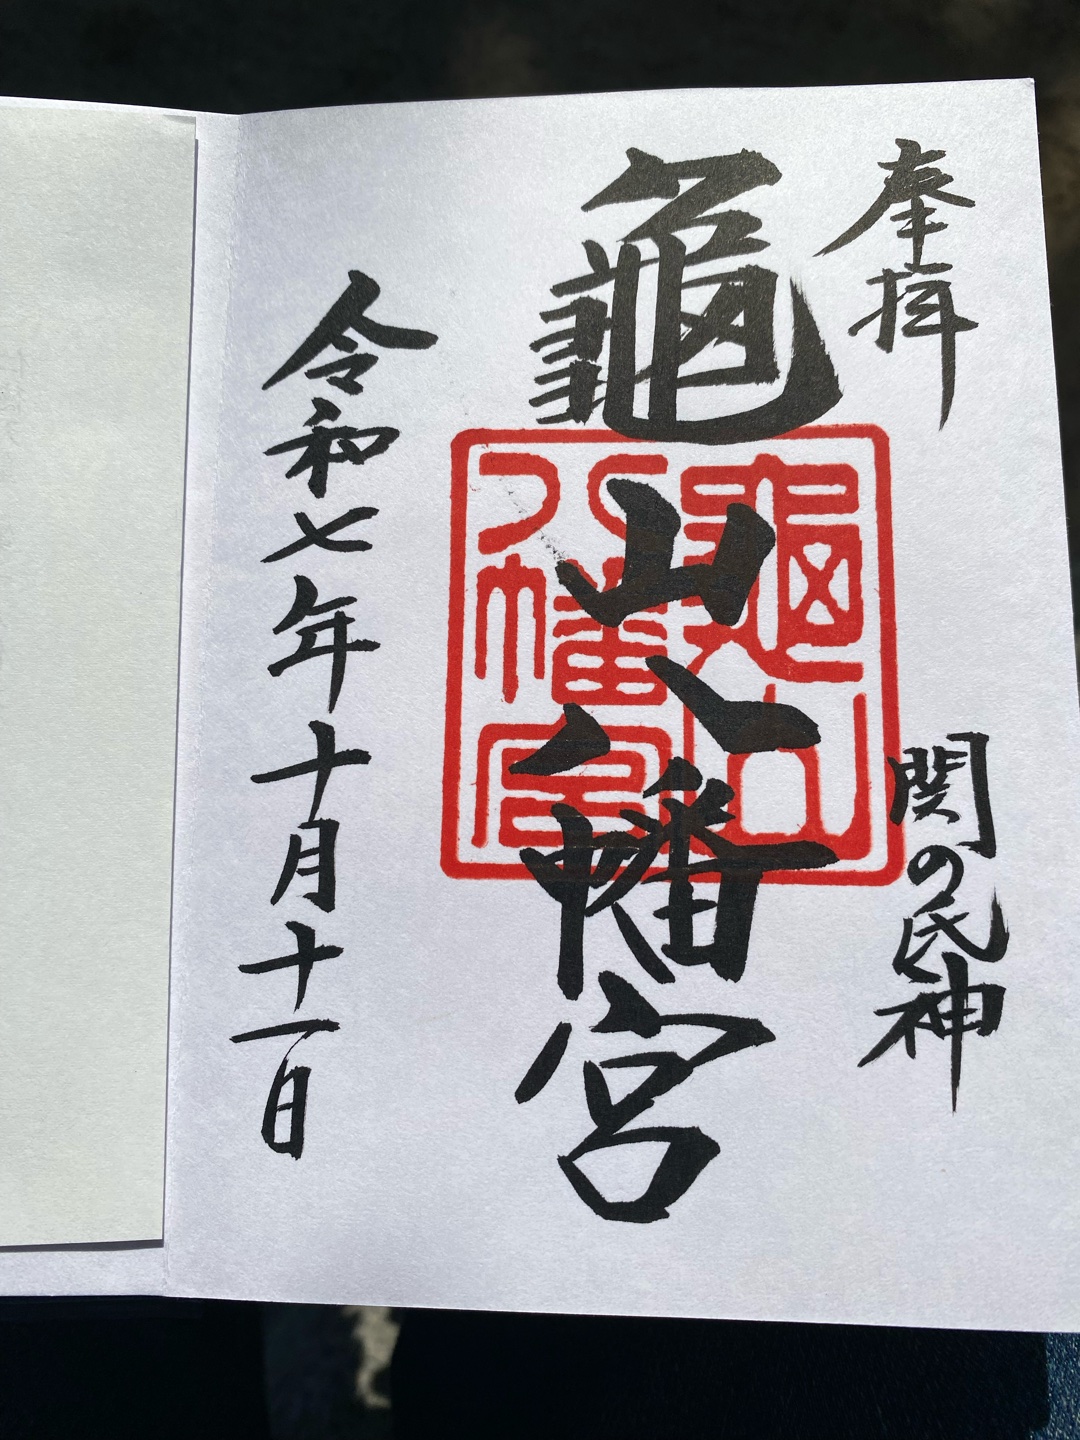 奉拝
関の氏神
龜山八幡宮
龜山
八幡宮
令和七年十月十一日